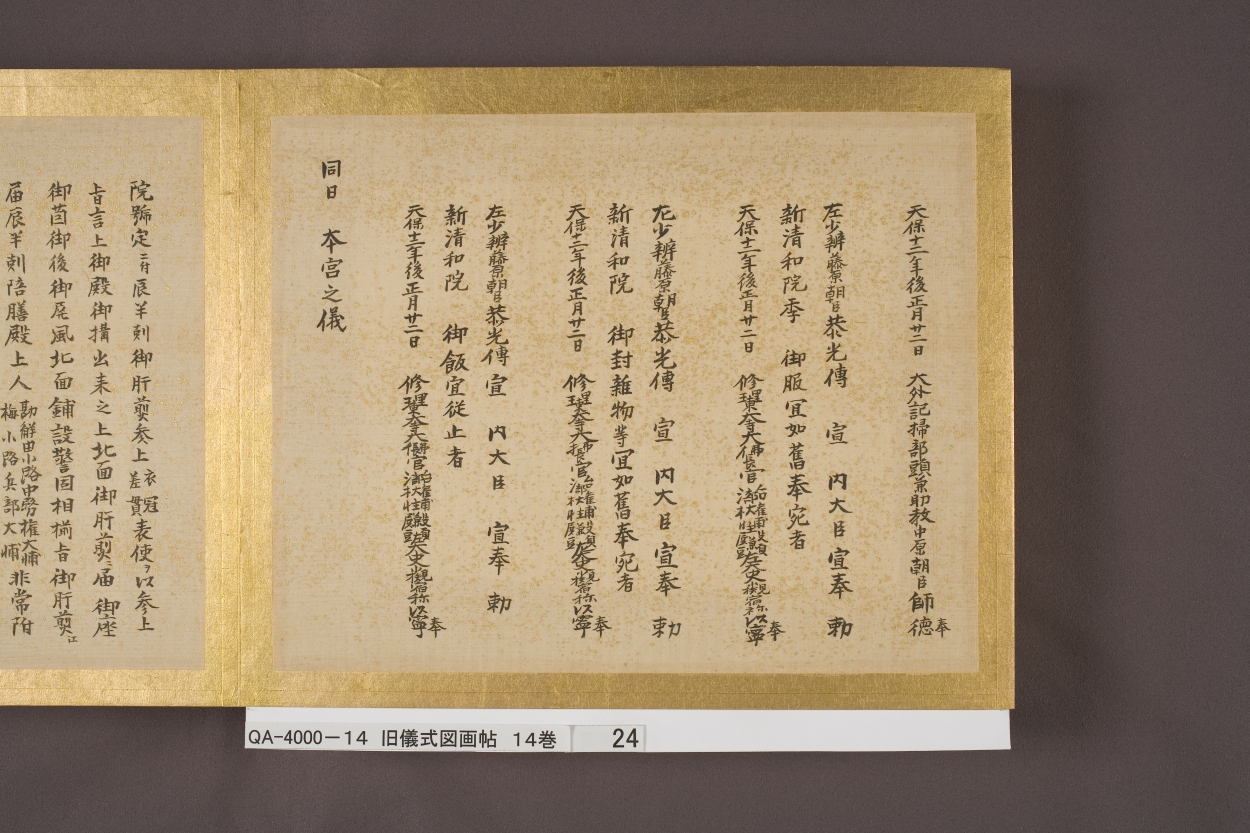 天保十二年後正月廿二日　大外記掃部頭兼助教中原朝臣師徳奉
左少辨藤原朝臣恭光傳　宣　内大臣宣奉　勅
新清和院季　御服冝如舊奉宛者
天保十二年後正月廿二日　修理東大寺大佛長官主殿頭左大史小槻宿祢以寧奉
左少辨藤原朝臣恭光傳　宣　内大臣宣奉　勅
新清和院　御封雑物等冝如舊奉宛者
天保十二年後正月廿二日　修理東大寺大佛長官主殿頭左大史小槻宿祢以寧奉
左少辨藤原朝臣恭光傳宣　内大臣　宣奉　勅
新清和院　御飯宜従止者
天保十二年後正月廿二日　修理東大寺大佛長官主殿頭左大史小槻宿祢以寧奉
同日　本宮之儀
院號定ニ付辰半剋御肝煎参上衣冠差貫表使ヲ以参上
旨言上御殿御搆出来之上北面御肝煎ニ届御座
御茵御後御屏風北面鋪設警固相揃旨御肝煎江
届辰半剋陪膳殿上人勘解由小路中務権大輔梅小路兵部大輔非常附
QA-4000-14　旧儀式図画帖　14巻　24